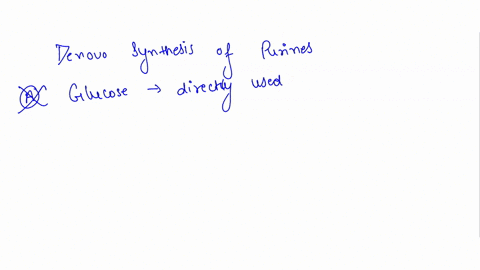 Denovo Synthesis of Purines
A Glucose → directly used